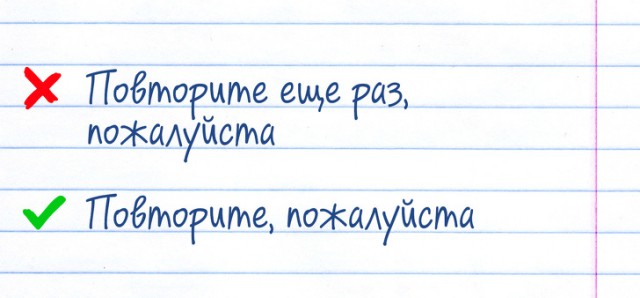 Повторите еще раз,
пожалуйста
Повторите, пожалуйста